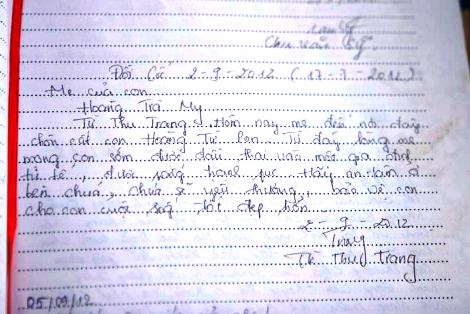 Chu Văn Sỹ.
Đồi Cốc 2-9-2012 (17-7-2012)
Mẹ của con
Hoàng Trà My
Từ Thu Trang. Hôm nay mẹ đến nơi đây
chôn cất con Hoàng Từ Lan. Từ đáy lòng mẹ
mong con sớm được đầu thai vào một gia đình
tử tế, được sống hạnh phúc. Hãy an tâm ở
bên chúa, chúa sẽ yêu thương, bảo vệ con
cho con cuộc sống tốt đẹp hơn.
2-9-2012
Trang
Từ Thu Trang
05/09/12